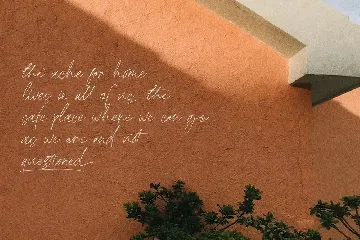 the ache for home
lives in all of us, the
safe place where we can go
as we are and not
questioned.